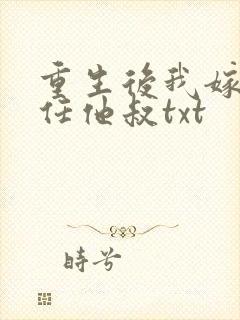 重生後我嫁
任他叔txt
時兮